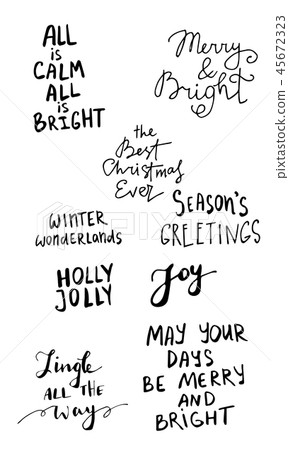 ALL
is
CALM
ALL
is
BRIGHT
Merry
&
Bright
the
Best
Christmas
Ever
SEASON'S
GREETINGS
WINTER
wonderlands
HOLLY
JOLLY
Joy
Jingle
ALL THE
Way
MAY YOUR
DAYS
BE MERRY
AND
BRIGHT
PIXTA
45672323